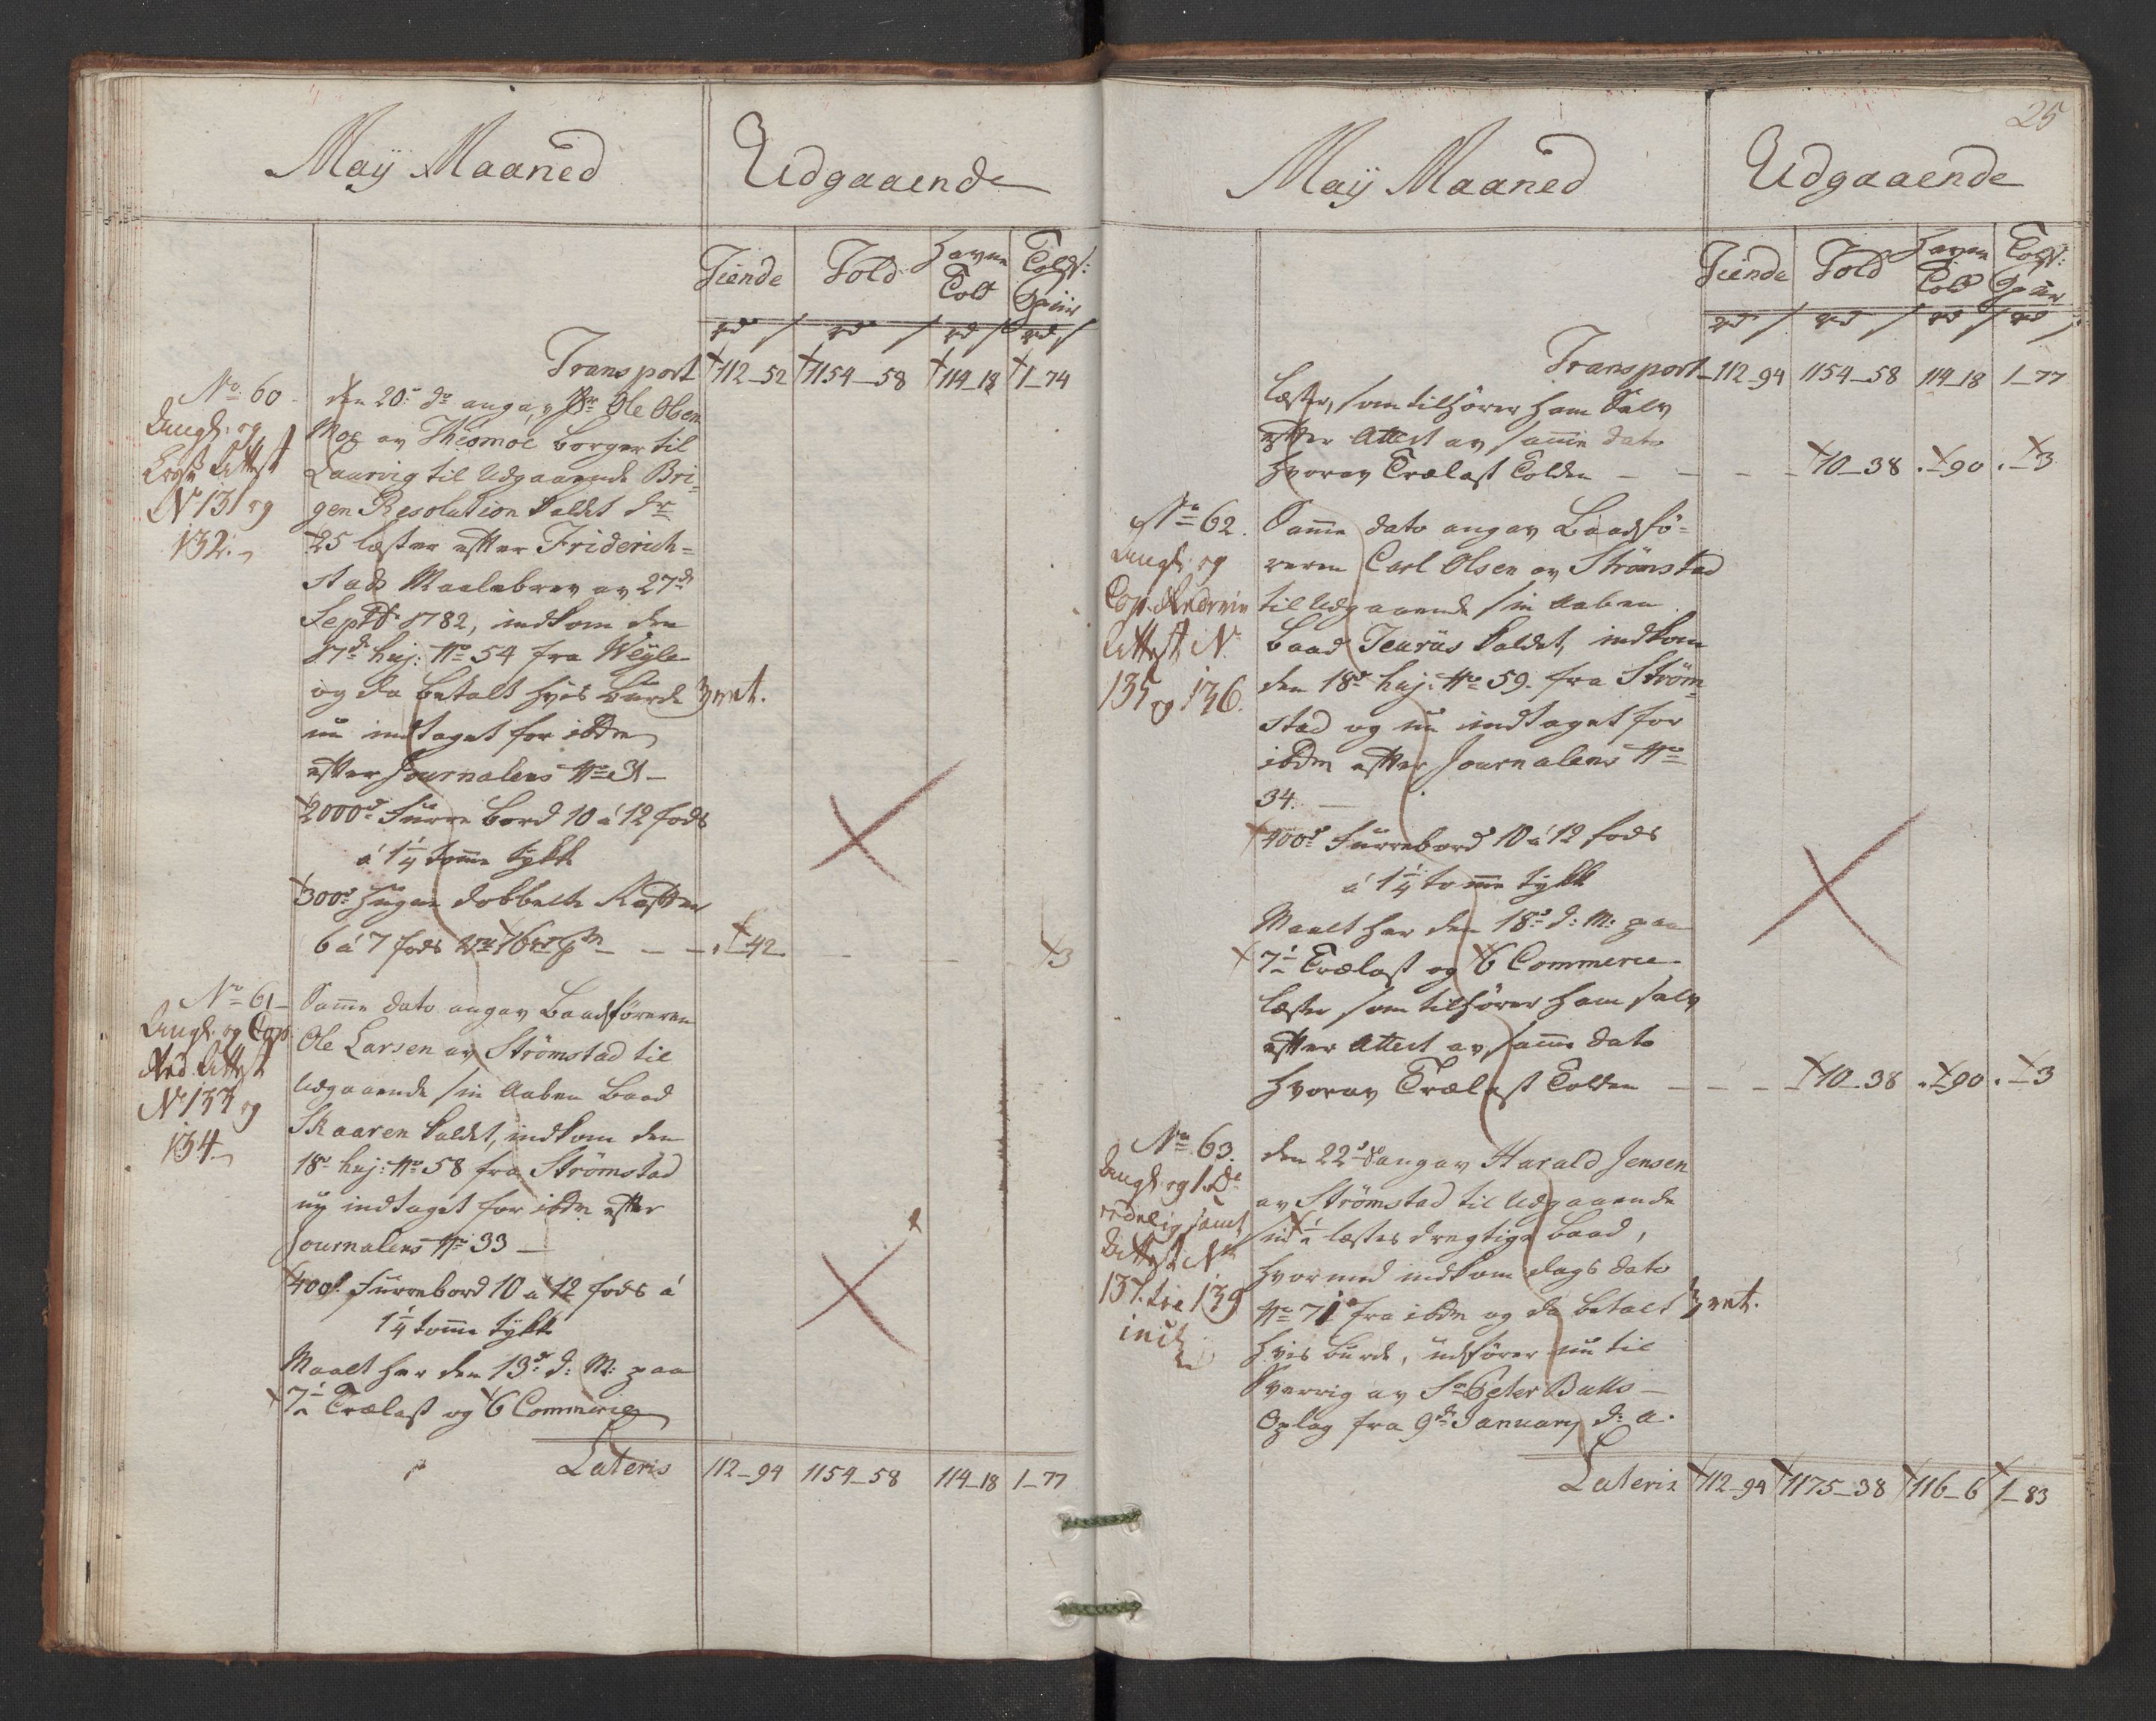 May Maaned
Udgaaende
Tiende Told Havne Told Told
rd s rd s rd s rd s
Transport 112-52 1154-58 114-18 1-74
No 60
Angl. og
Attest
No 131 og
132.
den 20de do angav Sr Ole Olsen
Moe av Thiømøe borger til
Laurvig til udgaaende Bri-
gen Resolution kaldt dr.
25 læster efter Friderich-
stads Maalebrev av 27de
Septbr 1782, indkom den
17de huj: No 54 fra Weyle
og da betalt hvis burde
nu indtaget for ibdm
efter Journalens No 31
2000de Furre bord 10 a 12 fods
a 1 1/4 tomme tykk
300de hugne dobbelte Rafter
6 a 7 fods - - - 42 - - - 3
No 61
Angl. og Cap
Attest
No 133 og
134
Samme dato angav Baadföreren
Ole Larsen av Strömstad til
udgaaende sin Aaben Baad
Skaaren kaldet, indkom den
18de huj: No 58 fra Strömstad
nu indtaget for ibdm efter
Journalens No 33
400de Furrebord 10 a 12 fods á
1 1/4 tomme tykk
Maalt her den 13de d: M: paa
7 1/2 Trælast og 6 Commerce
Lateris 112-94 1154-58 114-18 1-77
25
May Maaned
Udgaaende
Tiende Told Havne Told Told
rd s rd s rd s rd s
Transport 112-94 1154-58 114-18 1-77
læster, som tilhører ham Selv
efter Attest av samme dato
hvorav Trælast Tolden - - - 10-38 - 90 - 3
No 62
Angl. og
Attest No
135 og 136.
Samme dato angav Baadfö-
reren Carl Olsen av Strömstad
til udgaaende sin aaben
baad kaldet, indkom
den 18de huj: No 59. fra Ström-
stad og nu indtaget for
ibdm efter Journalens No
34.
400de Furrebord 10 a 12 fods
a 1 1/4 tomme tykk
Maalt her den 18de d: M: paa
7 1/2 Trælast og 6 Commerce
læster som tilhører ham selv
efter Attest av samme dato
hvorav Trælast Tolden - - - 10-38 - 90 - 3
No 63.
Angl. og
samt
Attest No
137 til 139
incl.
den 22de do angav Harald Jensen
av Strömstad til udgaaende
sin 1/2 læsters drægtige baad,
hvormed indkom dags dato
No 71 fra ibdm og da betalt
hvis burde, udfører nu til
Sverrig av Sr Peter Bulls
Oplag fra 9de January d: a.
Lateris 112-94 1175-38 116-6 1-83